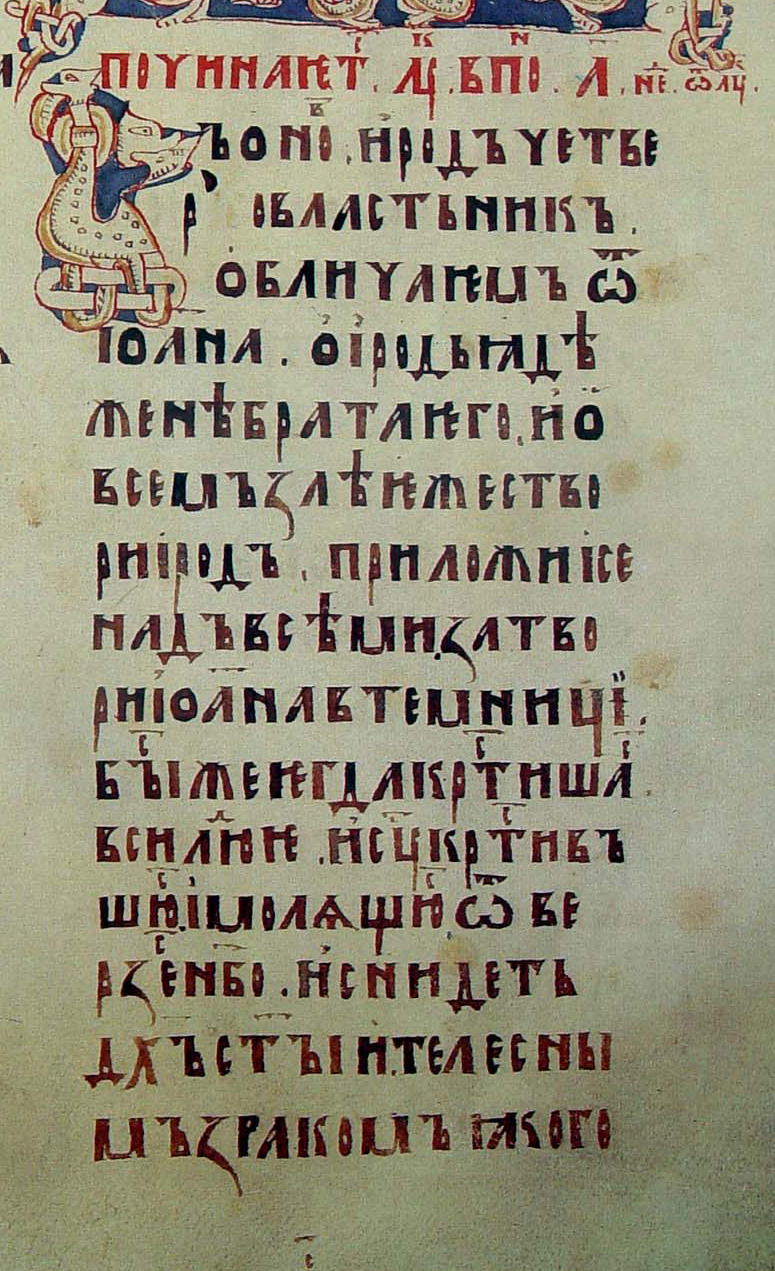 ПОЧИНАѤТ҇. ЛЦ҇. В ПО. Л҃. НЕ҃. Ѿ ЛЦ҇.
ВЪ ОНО В҃. И҆РОДЪ ЧЕТВЕ
Р҆ ОБЛАСТЬНИКЪ.
ОБЛИЧАѤМЪ Ѿ
ІОАНА. О І҆РОДЬꙖДѢ
ЖЕНѢ БРАТА ѤГО. И҆ О҆
ВСЕМЪ ЗЛѢ ѤЖЕ СТВО
РИ І҆РОДЪ. ПРИЛОЖИ І СЕ
НАДЪ ВСѢМИ. ЗАТВО
РИ І҆ОАНА В ТЕМНИЦЇ.
БЫ҇ ЖЕ ѤГДА КРТ҇ИША҇
ВСИ ЛЮ҃ДИѤ. И҆ С҃Ц҇ КРТ҇ИВЪ
ШЮ҇. І҆ МОЛѦЩЮ҇ Ѿ ВЕ
РЗЕ҇ НБО҃. И҆ СНИДЕТЬ
ДХ҃Ъ СТ҃ЫИ. ТЕЛЕСНЫ
МЪ ЗРАКОМЪ ꙖКО ГО